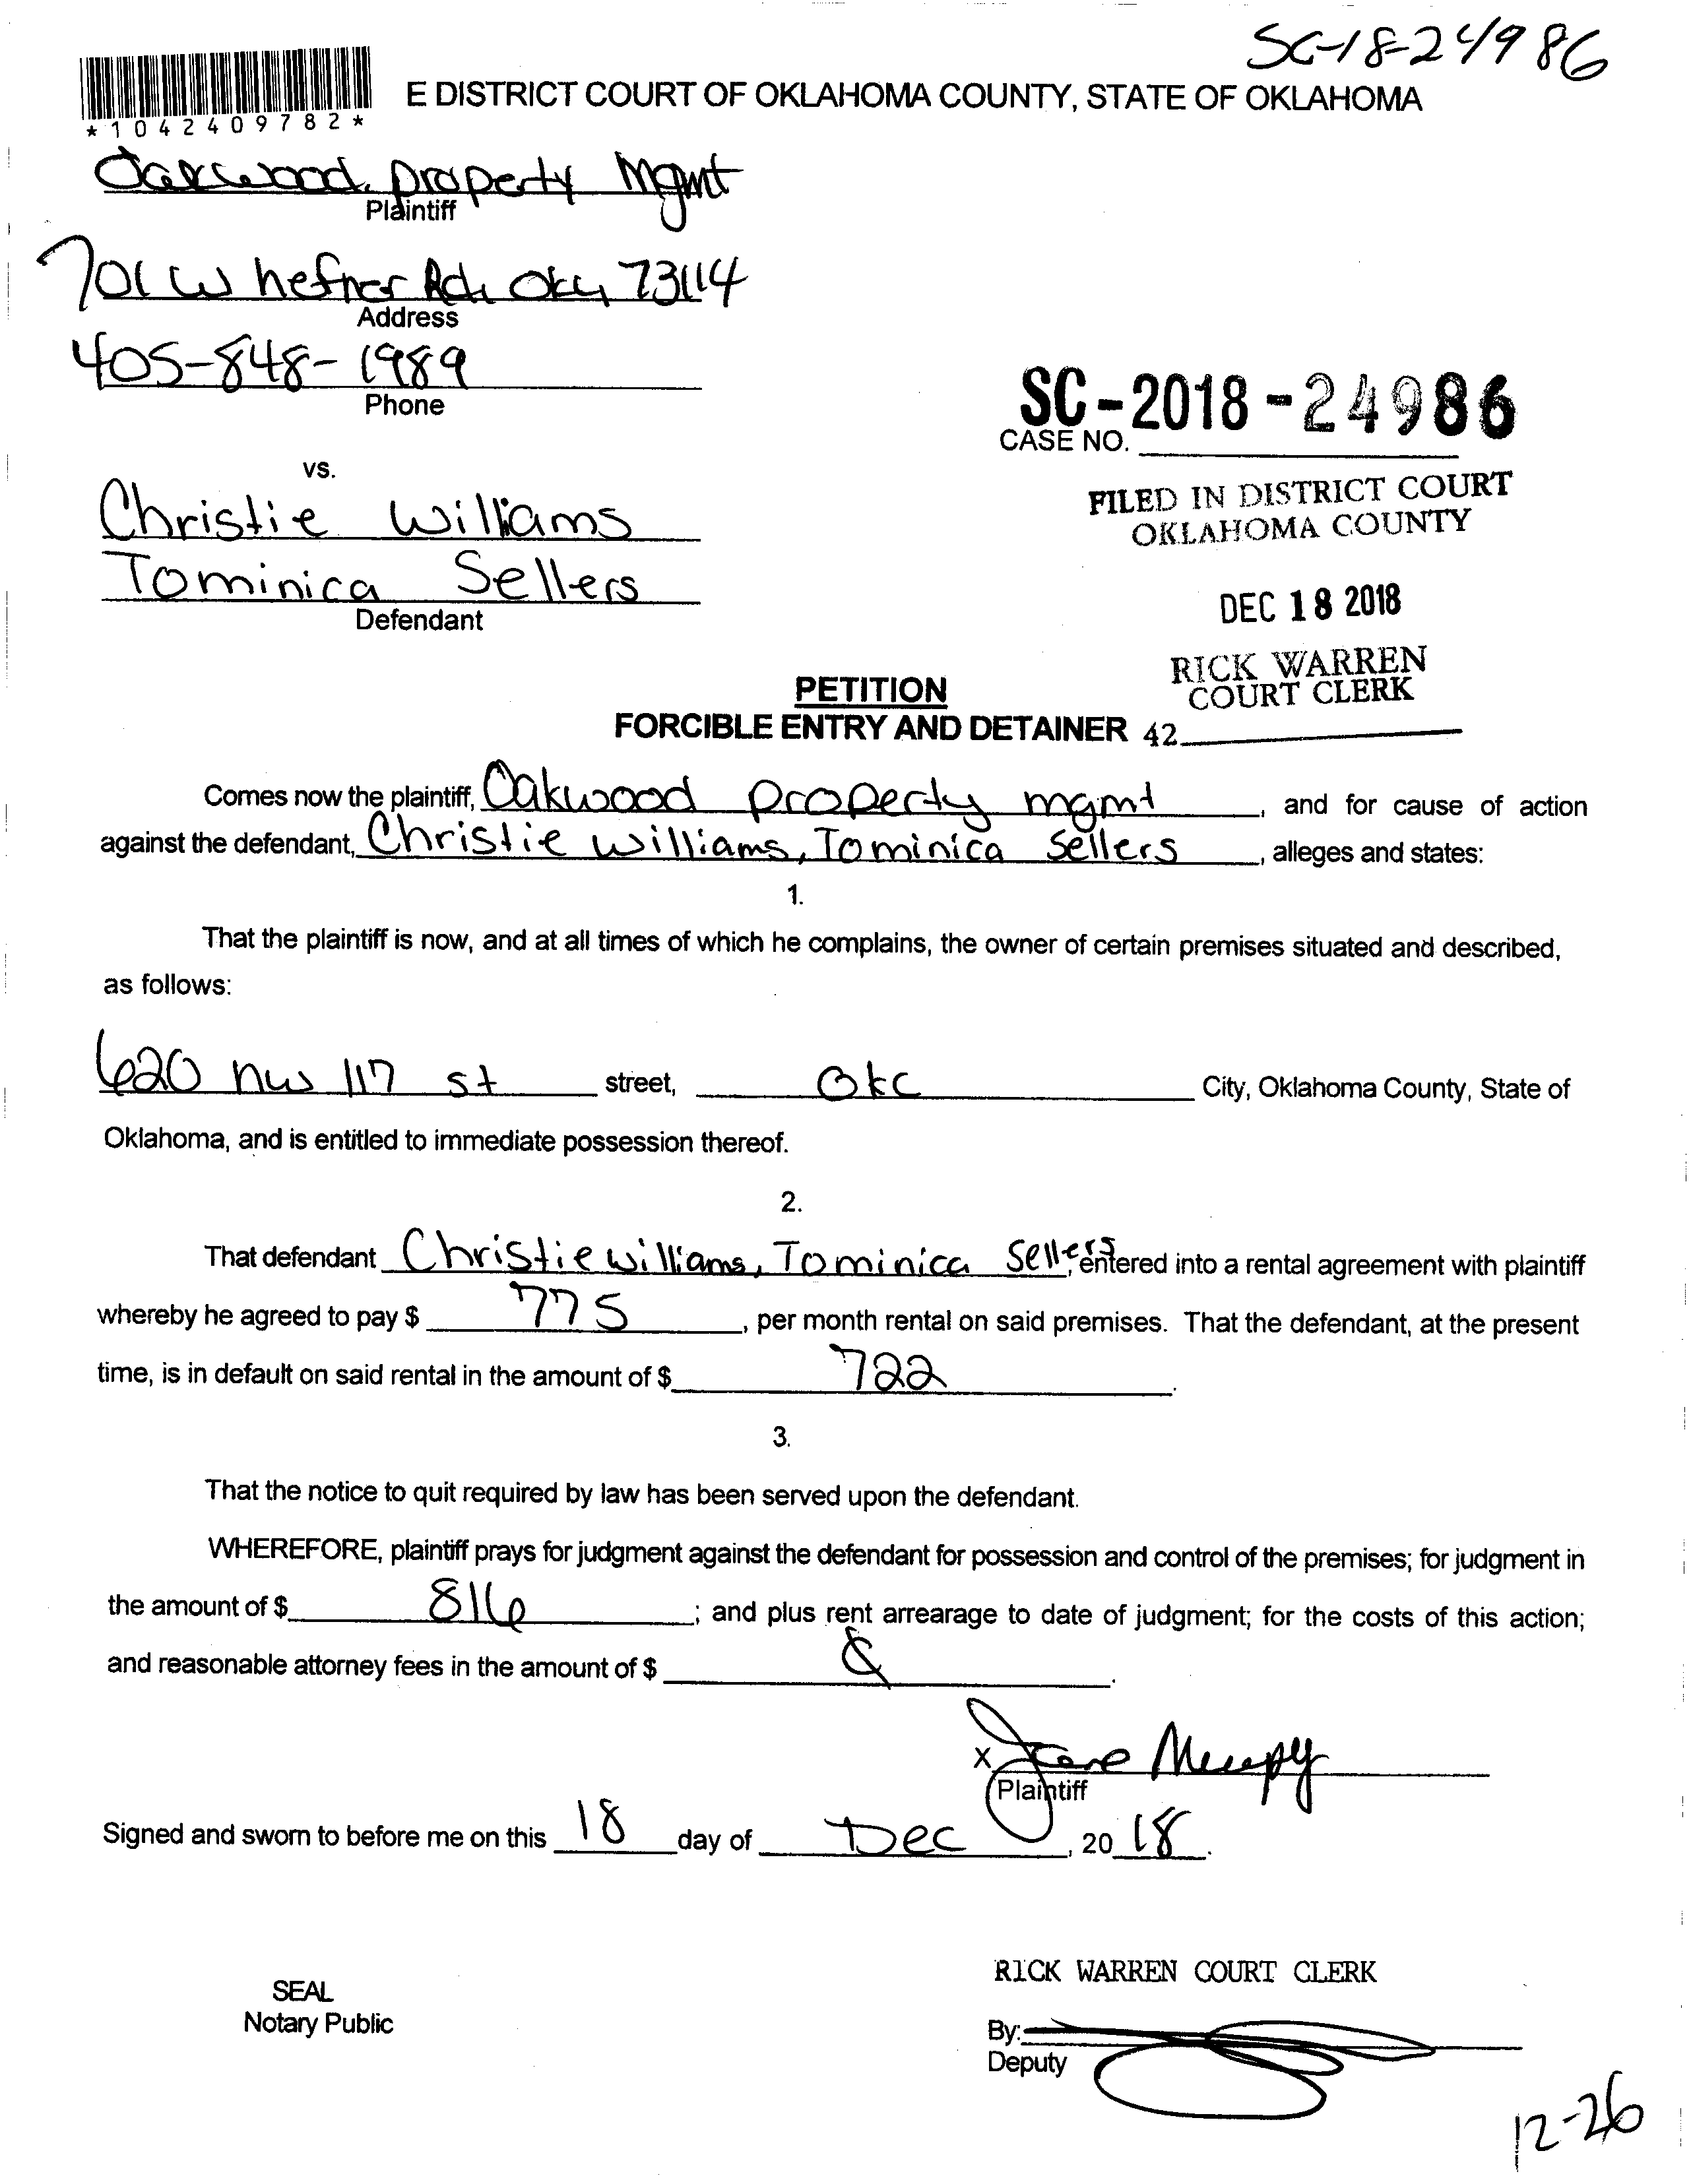 SC-18-24986
E DISTRICT COURT OF OKLAHOMA COUNTY, STATE OF OKLAHOMA
*1042409782*
Oakwood property Mgmt
Plaintiff
701 W hefner Rd. OKC, 73114
Address
405-848-1989
Phone
SC-2018-24986
CASE NO.
vs.
FILED IN DISTRICT COURT
OKLAHOMA COUNTY
Christie Williams
Tominica Sellers
Defendant
DEC 18 2018
RICK WARREN
COURT CLERK
PETITION
FORCIBLE ENTRY AND DETAINER 42
Comes now the plaintiff, Oakwood property mgmt, and for cause of action
against the defendant, Christie Williams, Tominica Sellers, alleges and states:
1.
That the plaintiff is now, and at all times of which he complains, the owner of certain premises situated and described,
as follows:
620 nw 117 st street, OKC City, Oklahoma County, State of
Oklahoma, and is entitled to immediate possession thereof.
2.
That defendant Christie Williams, Tominica Sellers, entered into a rental agreement with plaintiff
whereby he agreed to pay $ 775, per month rental on said premises. That the defendant, at the present
time, is in default on said rental in the amount of $ 722.
3.
That the notice to quit required by law has been served upon the defendant.
WHEREFORE, plaintiff prays for judgment against the defendant for possession and control of the premises; for judgment in
the amount of $ 816; and plus rent arrearage to date of judgment; for the costs of this action;
and reasonable attorney fees in the amount of $.
X
Plaintiff
Signed and sworn to before me on this 18 day of Dec, 2018.
RICK WARREN COURT CLERK
SEAL
Notary Public
By:
Deputy
12-26